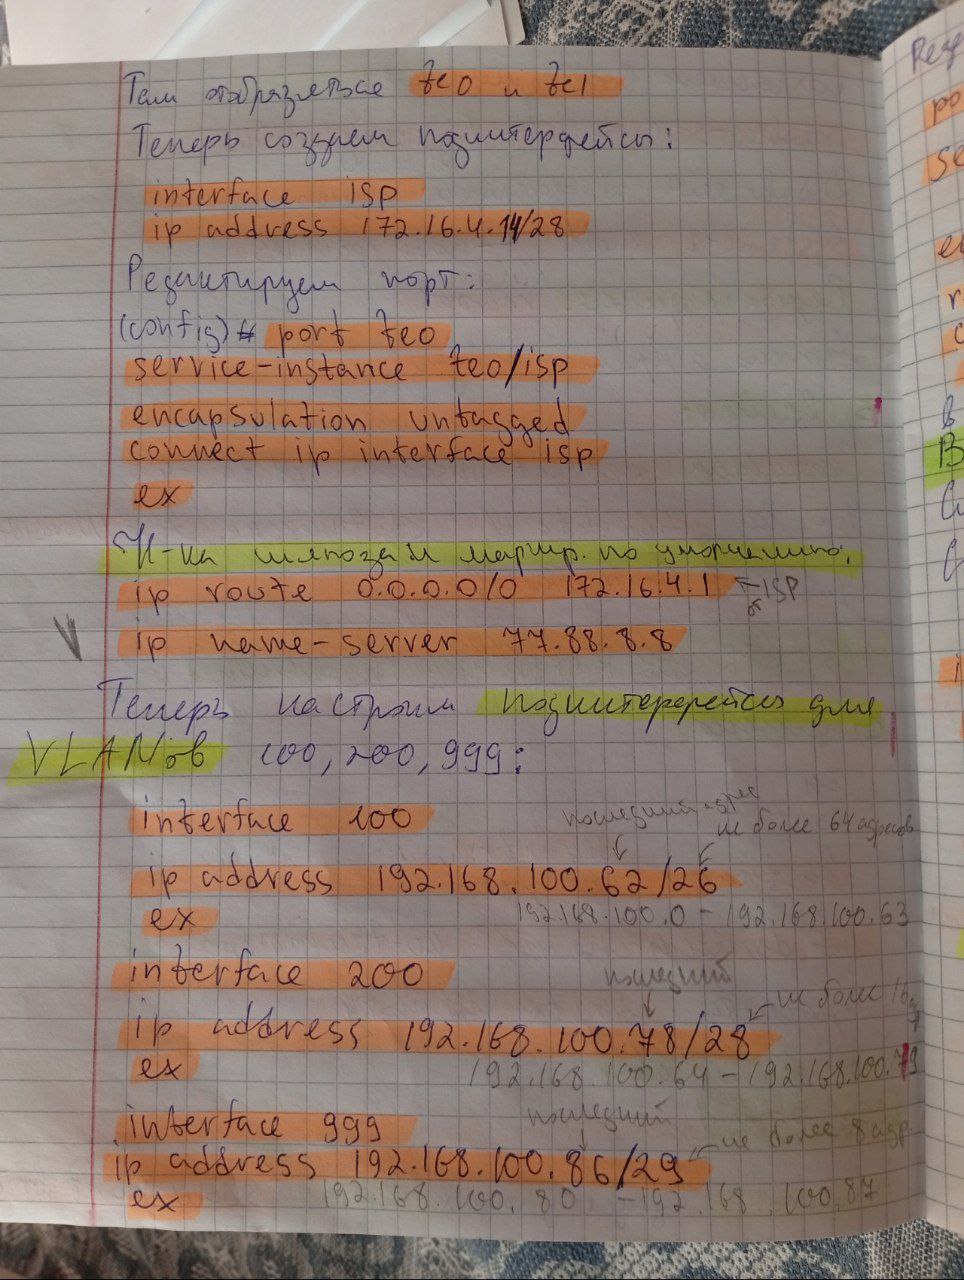 Там отобразяться te0 и te1
Теперь создаем подинтерфейсы:
interface isp
ip address 172.16.4.14/28
Редактируем порт:
(config)# port te0
service-instance te0/isp
encapsulation untagged
connect ip interface isp
ex
Н-ка шлюза и маршр. по умолчанию.
ip route 0.0.0.0/0 172.16.4.1 ← ISP
ip name-server 77.88.8.8
Теперь настроим подинтерфейсы для
VLAN'ов 100, 200, 999:
interface 100
последний адрес
не более 64 адресов
ip address 192.168.100.62/26
ex
192.168.100.0 - 192.168.100.63
interface 200
последний
не более 16
ip address 192.168.100.78/28
ex
192.168.100.64 - 192.168.100.79
interface 999
последний
не более 8 адр
ip address 192.168.100.86/29
ex
192.168.100.80 - 192.168.100.87